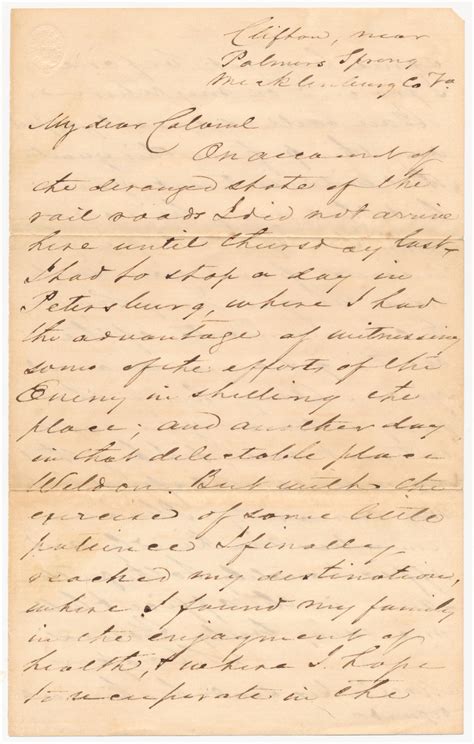 Clifton, near
Palmers Spring
Mecklenburg Co Va.
My dear Colonel
On account of
the deranged state of the
rail roads I did not arrive
here until Thursday last
I had to stop a day in
Petersburg, where I had
the advantage of witnessing
some of the efforts of the
Enemy in shelling the
place; and another day
in that delectable place
Weldon. But with the
exercise of some little
patience I finally
reached my destination,
where I found my family
in the enjoyment of
health, & where I hope
to recuperate in the